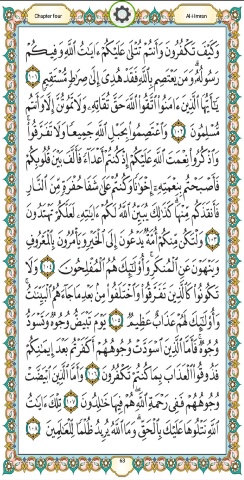 Chapter four
Al-Imran
وَكَيْفَ تَكْفُرُونَ وَأَنتُمْ تُتْلَىٰ عَلَيْكُمْ ءَايَٰتُ ٱللَّهِ وَفِيكُمْ
رَسُولُهُۥ وَمَن يَعْتَصِم بِٱللَّهِ فَقَدْ هُدِىَ إِلَىٰ صِرَٰطٍ مُّسْتَقِيمٍ ١٠١
يَٰٓأَيُّهَا ٱلَّذِينَ ءَامَنُوا۟ ٱتَّقُوا۟ ٱللَّهَ حَقَّ تُقَاتِهِۦ وَلَا تَمُوتُنَّ إِلَّا وَأَنتُم
مُّسْلِمُونَ ١٠٢ وَٱعْتَصِمُوا۟ بِحَبْلِ ٱللَّهِ جَمِيعًا وَلَا تَفَرَّقُوا۟
وَٱذْكُرُوا۟ نِعْمَتَ ٱللَّهِ عَلَيْكُمْ إِذْ كُنتُمْ أَعْدَآءً فَأَلَّفَ بَيْنَ قُلُوبِكُمْ
فَأَصْبَحْتُم بِنِعْمَتِهِۦٓ إِخْوَٰنًا وَكُنتُمْ عَلَىٰ شَفَا حُفْرَةٍ مِّنَ ٱلنَّارِ
فَأَنقَذَكُم مِّنْهَا كَذَٰلِكَ يُبَيِّنُ ٱللَّهُ لَكُمْ ءَايَٰتِهِۦ لَعَلَّكُمْ تَهْتَدُونَ
١٠٣ وَلْتَكُن مِّنكُمْ أُمَّةٌ يَدْعُونَ إِلَى ٱلْخَيْرِ وَيَأْمُرُونَ بِٱلْمَعْرُوفِ
وَيَنْهَوْنَ عَنِ ٱلْمُنكَرِ وَأُو۟لَٰٓئِكَ هُمُ ٱلْمُفْلِحُونَ ١٠٤ وَلَا
تَكُونُوا۟ كَٱلَّذِينَ تَفَرَّقُوا۟ وَٱخْتَلَفُوا۟ مِنۢ بَعْدِ مَا جَآءَهُمُ ٱلْبَيِّنَٰتُ
وَأُو۟لَٰٓئِكَ لَهُمْ عَذَابٌ عَظِيمٌ ١٠٥ يَوْمَ تَبْيَضُّ وُجُوهٌ وَتَسْوَدُّ
وُجُوهٌ فَأَمَّا ٱلَّذِينَ ٱسْوَدَّتْ وُجُوهُهُمْ أَكَفَرْتُم بَعْدَ إِيمَٰنِكُمْ
فَذُوقُوا۟ ٱلْعَذَابَ بِمَا كُنتُمْ تَكْفُرُونَ ١٠٦ وَأَمَّا ٱلَّذِينَ ٱبْيَضَّتْ
وُجُوهُهُمْ فَفِى رَحْمَةِ ٱللَّهِ هُمْ فِيهَا خَٰلِدُونَ ١٠٧ تِلْكَ ءَايَٰتُ
ٱللَّهِ نَتْلُوهَا عَلَيْكَ بِٱلْحَقِّ وَمَا ٱللَّهُ يُرِيدُ ظُلْمًا لِّلْعَٰلَمِينَ ١٠٨
63